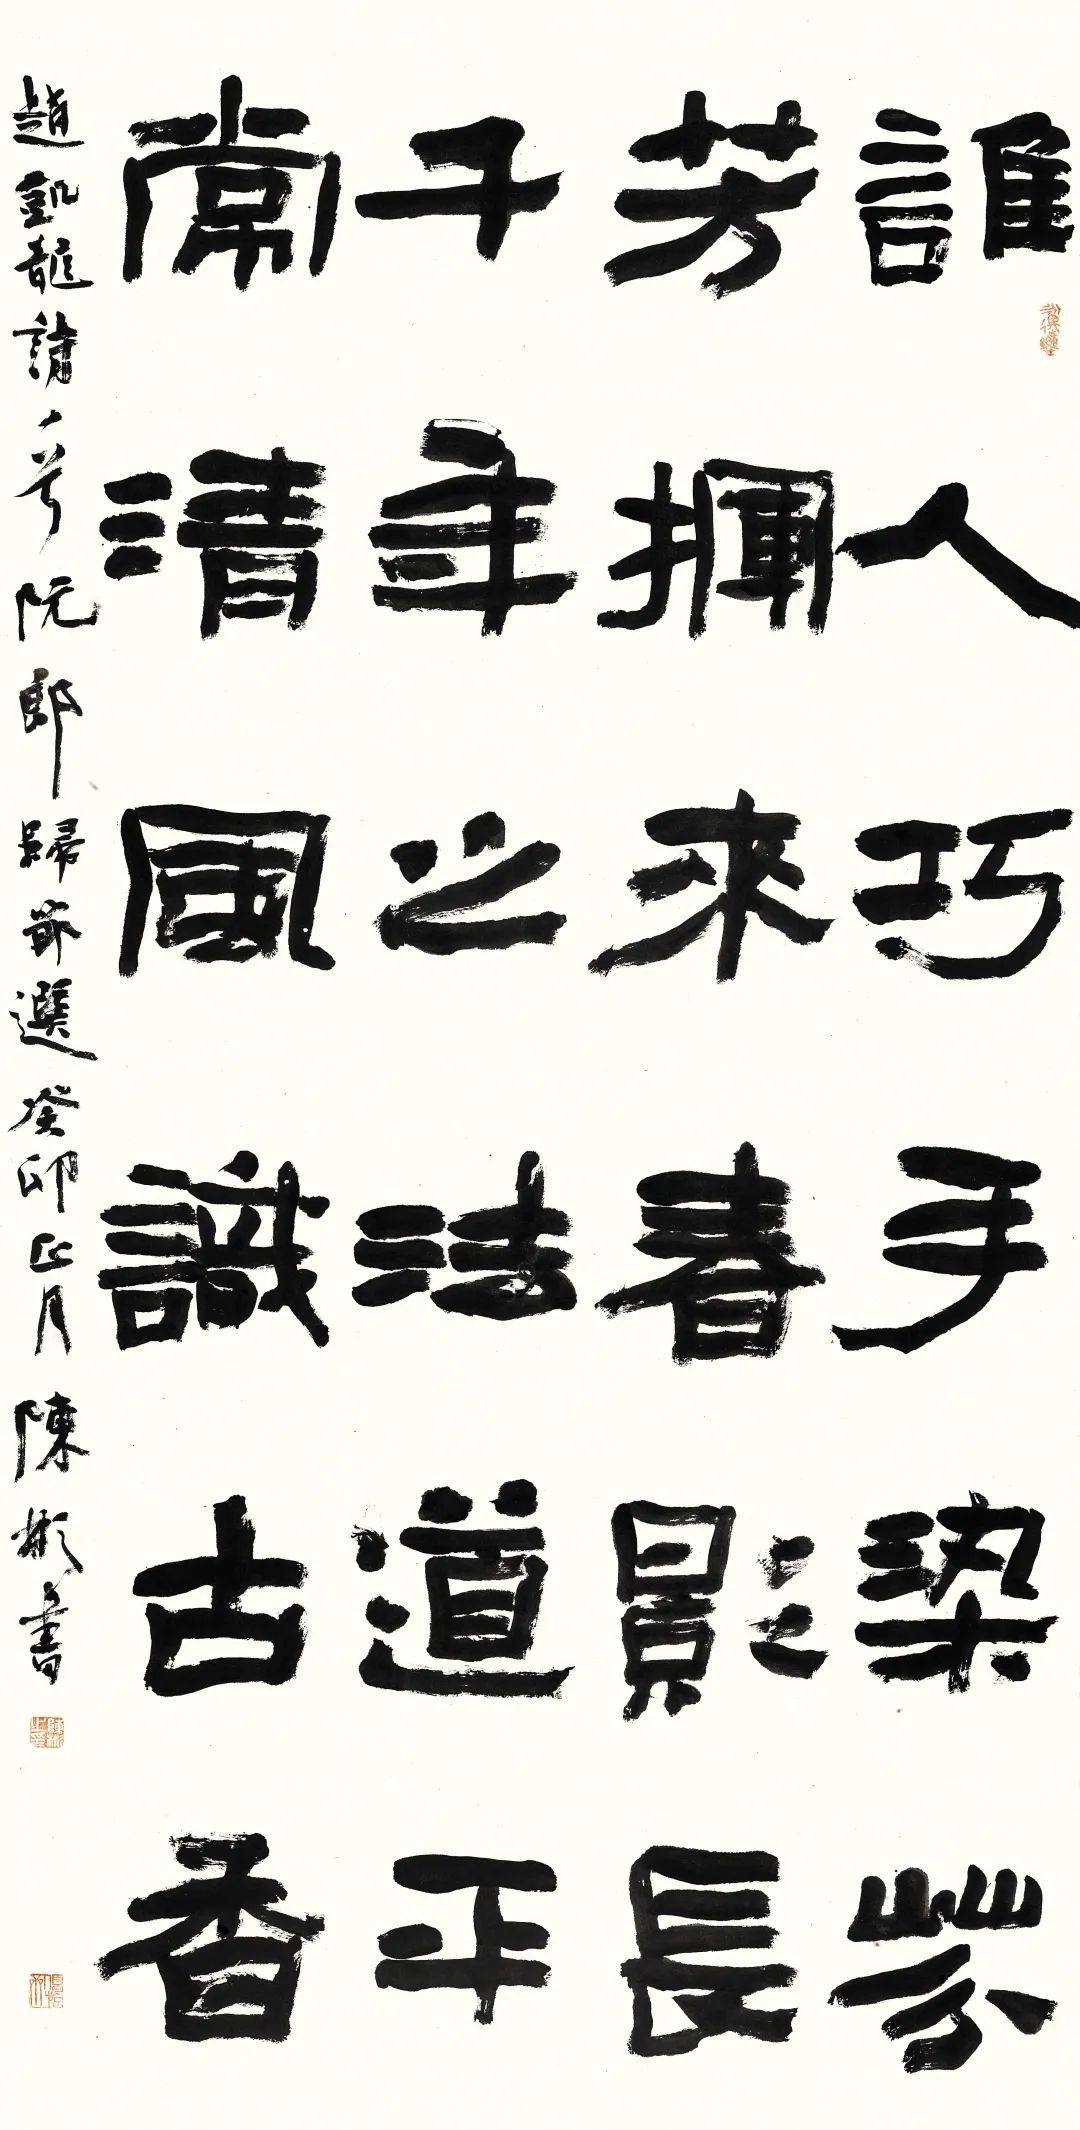 誰人巧手染芬
芳揮來春影長
千年之法道平
常清風識古香
趙凱龍 阮郎歸節選癸卯正月陳彬書